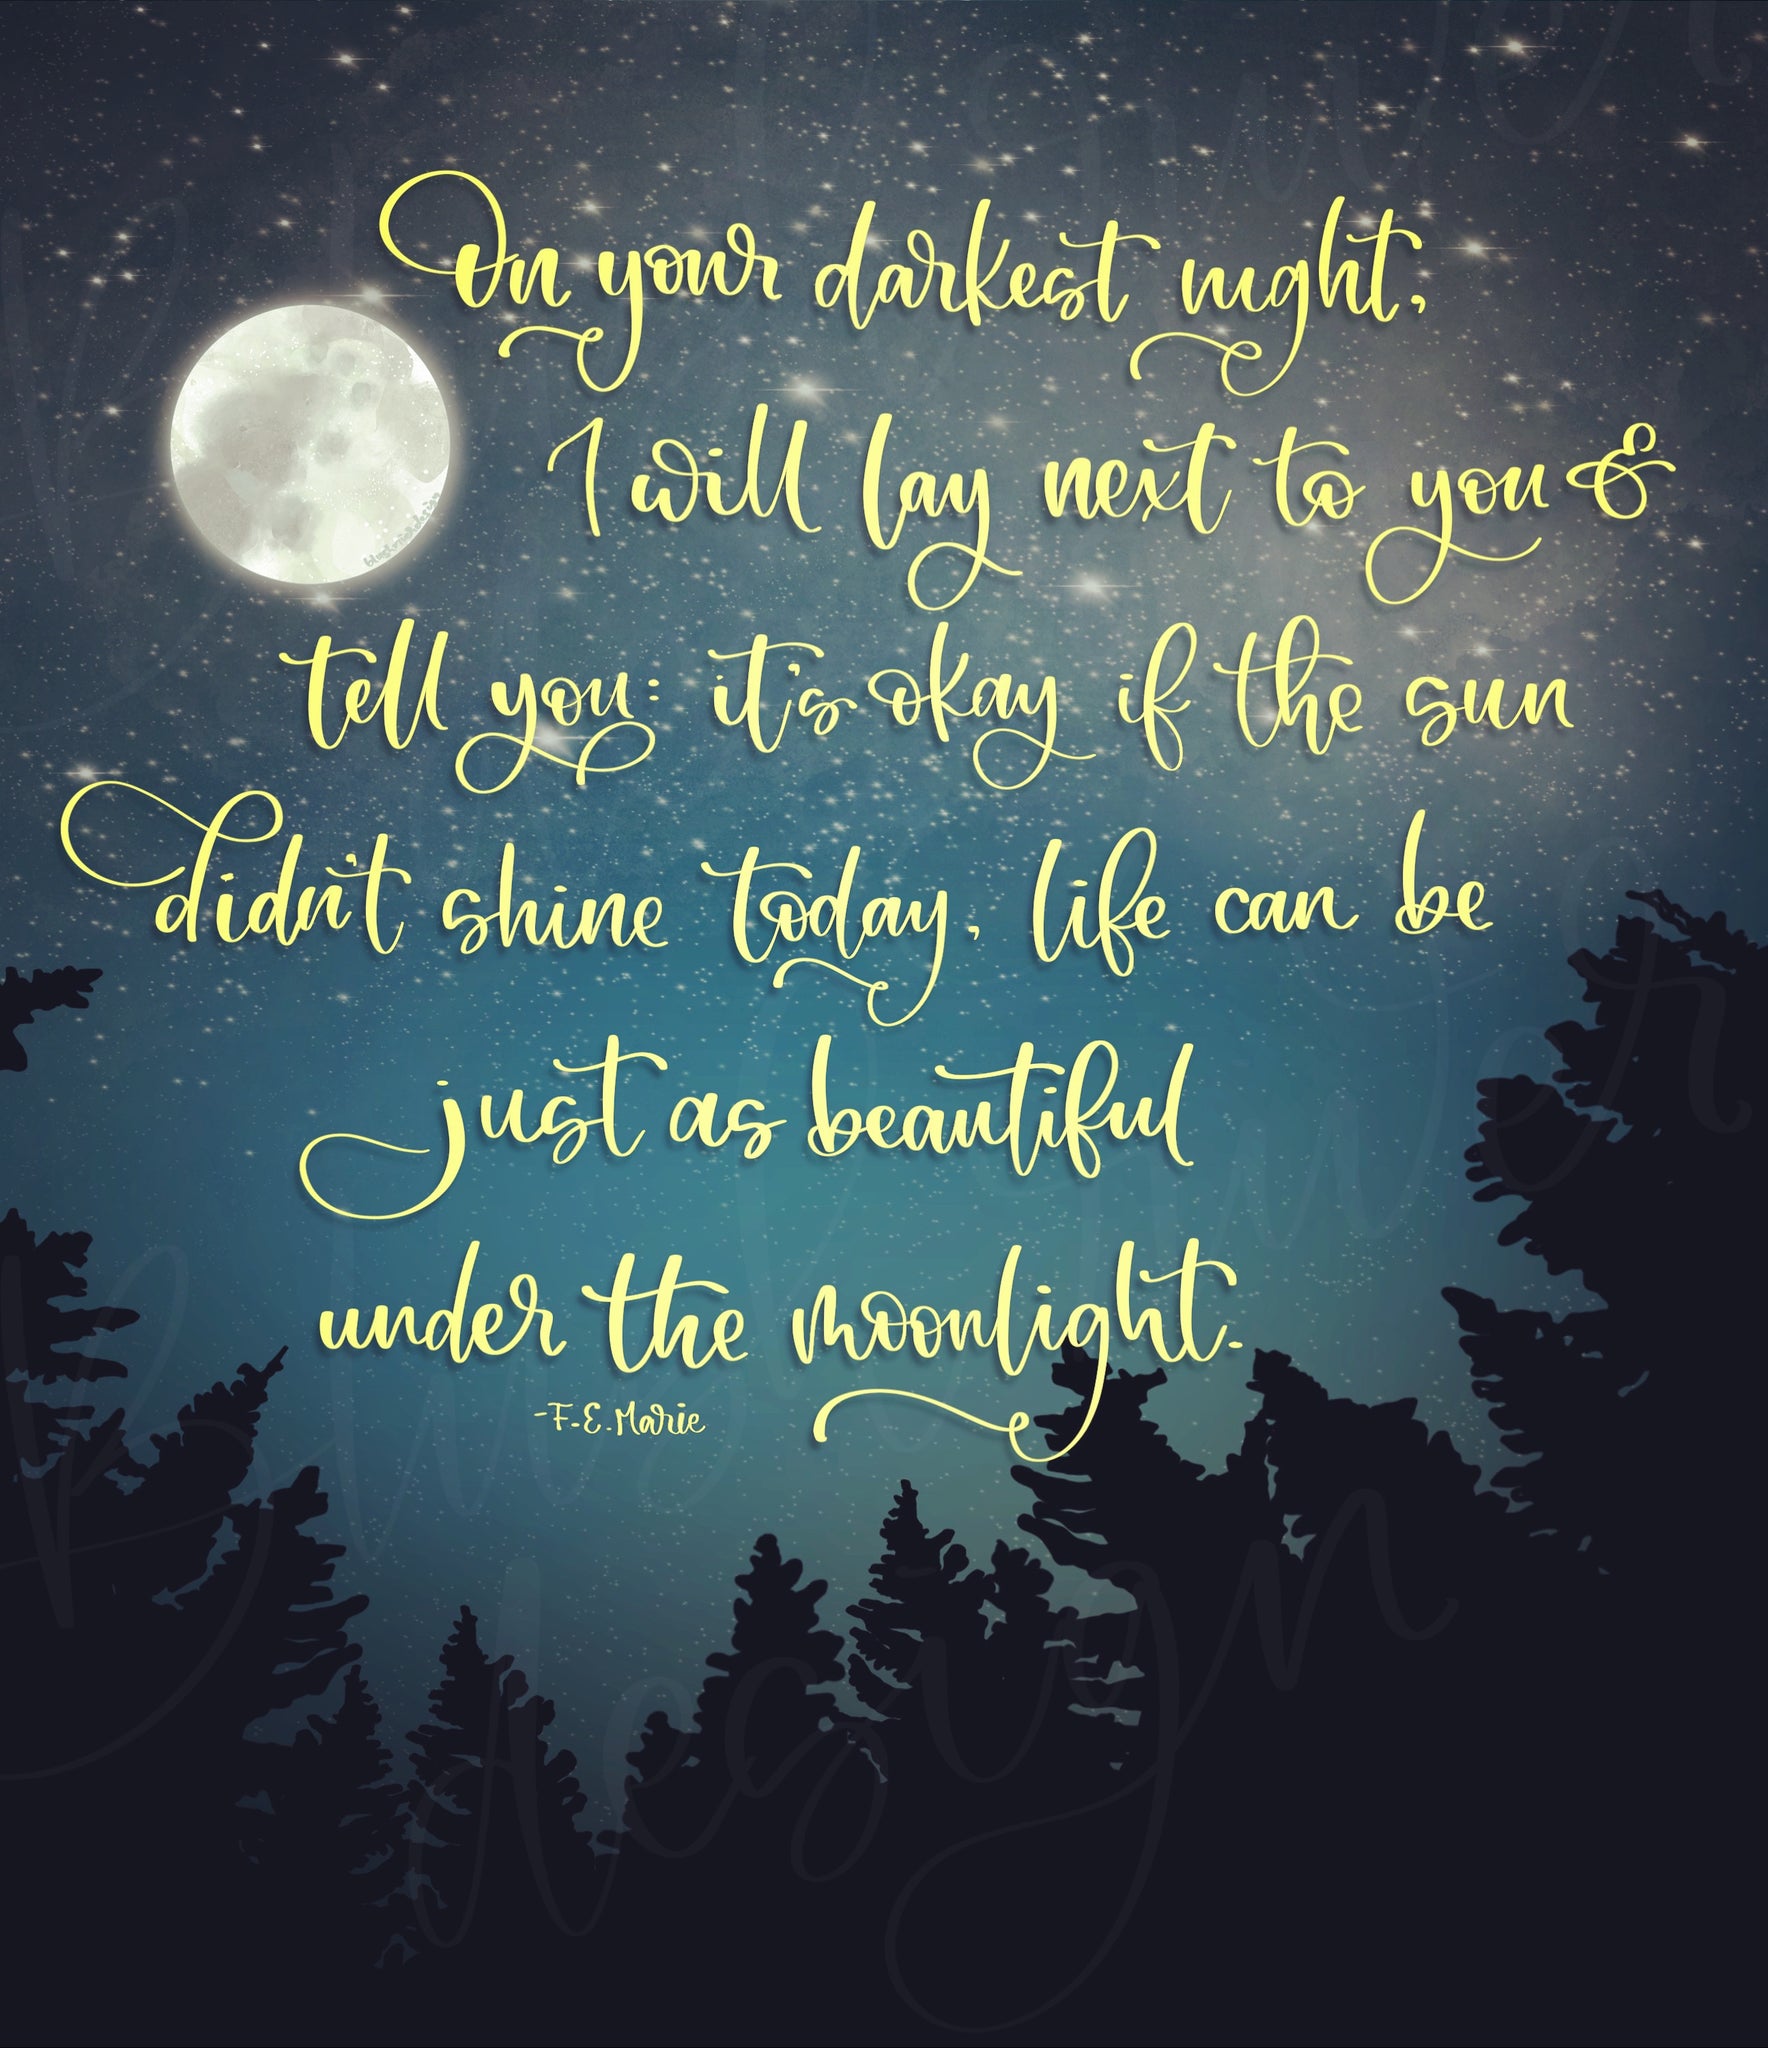 On your darkest night,
I will lay next to you &
tell you: it's okay if the sun
didn't shine today, life can be
just as beautiful
under the moonlight.
-F.E.Marie
Blush
design